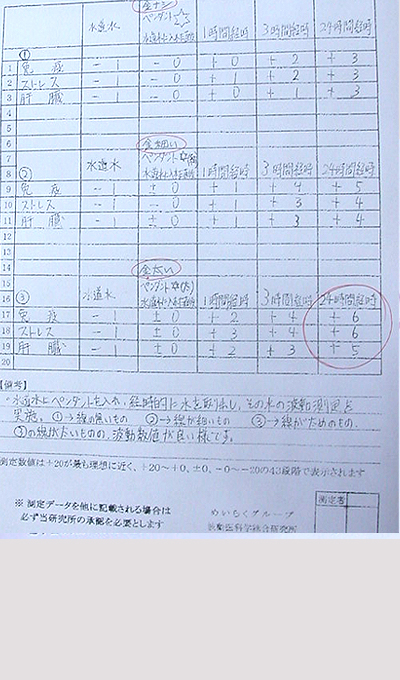 金ナシ
水道水 ペンダント
水道水に入れた直後 1時間経時 3時間経時 24時間経時
①
1 免疫 -1 -0 +0 +2 +3
2 ストレス -1 -0 +1 +2 +3
3 肝臓 -1 -0 +0 +1 +3
4
5
6 金細い
7 水道水 ペンダント
8 ② 水道水に入れた直後 1時間経時 3時間経時 24時間経時
9 免疫 -1 ±0 +1 +4 +5
10 ストレス -1 -0 +1 +3 +4
11 肝臓 -1 ±0 +1 +3 +4
12
13
14 金太い
15 水道水 ペンダント
16 ③ 水道水に入れた直後 1時間経時 3時間経時 24時間経時
17 免疫 -1 ±0 +2 +4 +6
18 ストレス -1 ±0 +3 +4 +6
19 肝臓 -1 ±0 +2 +3 +5
20
【備考】
・水道水にペンダントを入れ、経時的に水を取出し、その水の波動測定を
実施。①→線が無いもの ②→線が細いもの ③→線が太めのもの。
③の線が太いものの、波動数値が良い様です。
測定数値は+20が最も理想に近く、+20～+0、±0、-0～-20の43段階で表示されます
※ 測定データを他に記載される場合は
必ず当研究所の承認を必要とします
測定者
めいらくグループ
波動医科学総合研究所